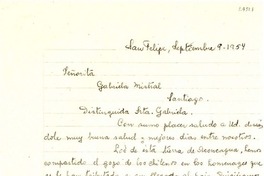 San Felipe, Septiembre 9-1954
Señorita
Gabriela Mistral
Santiago.
Distinguida Srta. Gabriela.
Con sumo placer saludo a Ud. deseán
dole muy buena salud y mejores días entre nosotros.
Los de esta tierra de Aconcagua, hemos
compartido el gozo de los chilenos en los homenajes que
se le han tributado